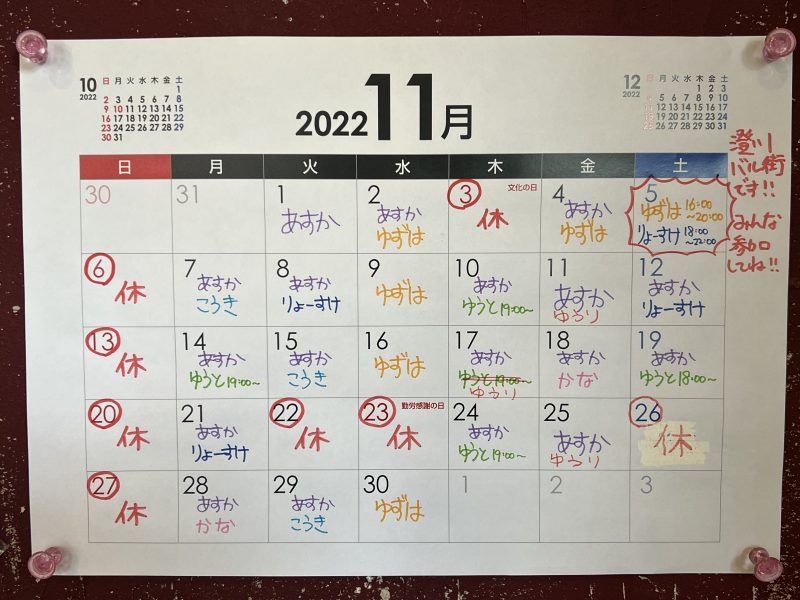 10
2022
日 月 火 水 木 金 土
1
2 3 4 5 6 7 8
9 10 11 12 13 14 15
16 17 18 19 20 21 22
23 24 25 26 27 28 29
30 31
2022 11月
12
2022
日 月 火 水 木 金 土
1 2 3
4 5 6 7 8 9 10
11 12 13 14 15 16 17
18 19 20 21 22 23 24
25 26 27 28 29 30 31
澄川
バル街
です!!
みんな
参加
してね!!
日 月 火 水 木 金 土
30
31
1
あすか
2
あすか
ゆずは
3 文化の日
休
4
あすか
ゆずは
5
ゆずは 16:00
~20:00
りょーすけ 18:00
~22:00
6
休
7
あすか
こうき
8
あすか
りょーすけ
9
ゆずは
10
あすか
ゆうと19:00~
11
あすか
ゆうり
12
あすか
りょーすけ
13
休
14
あすか
ゆうと19:00~
15
あすか
こうき
16
ゆずは
17
あすか
ゆうと19:00~
ゆうり
18
あすか
かな
19
あすか
ゆうと18:00~
20
休
21
あすか
りょーすけ
22
休
23 勤労感謝の日
休
24
あすか
ゆうと19:00~
25
あすか
ゆうり
26
休
27
休
28
あすか
かな
29
あすか
こうき
30
ゆずは
1
2
3